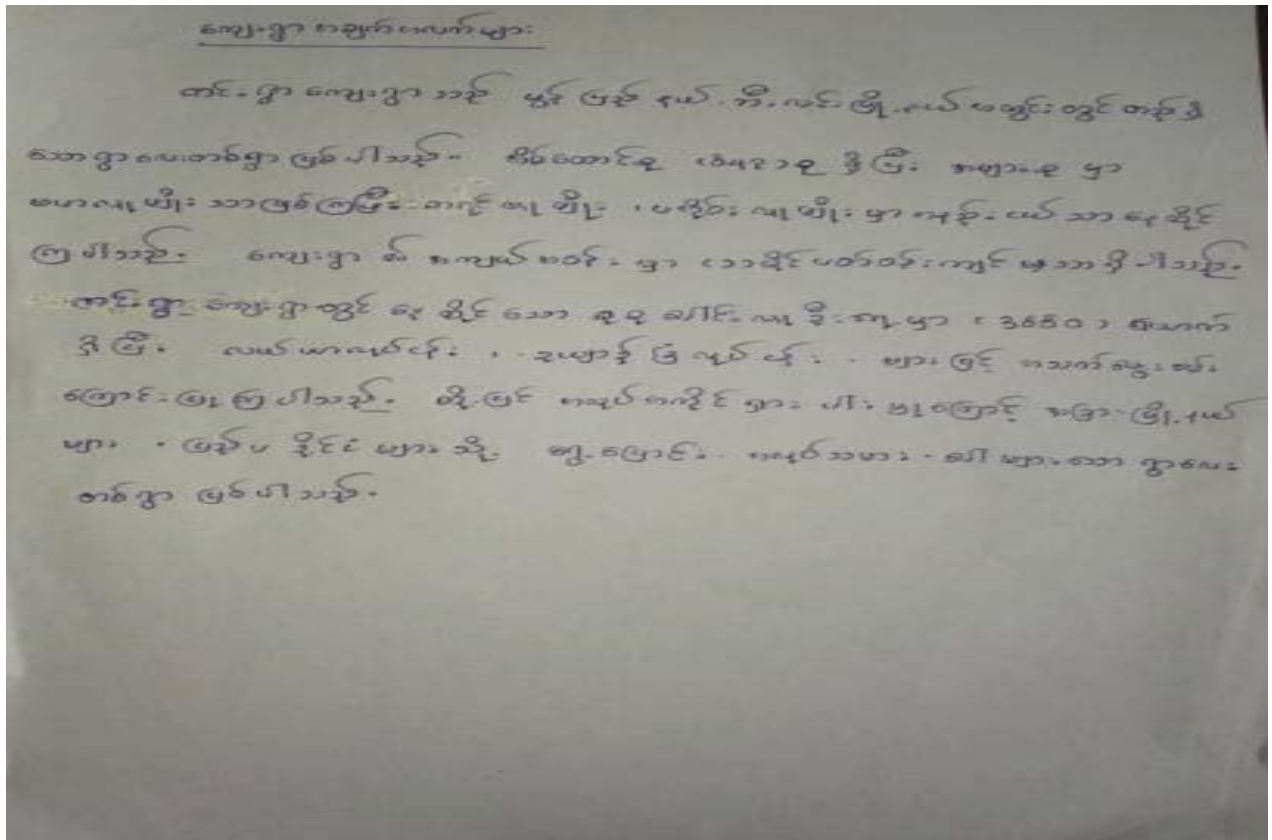 ကျေးရွာ အချက်အလက်များ
တင်းရွာ ကျေးရွာ သည် မွန် ပြည် နယ်၊ ဘီးလင်း မြို့နယ် အတွင်း တွင် တည် ရှိ
သော ရွာ လေး တစ် ရွာ ဖြစ် ပါ သည်။ အိမ်ထောင်စု ရှိ ပြီး အများစု မှာ
လူမျိုး သာ ဖြစ် ကြ ပြီး ကရင် လူမျိုး ၊ လူမျိုး မှာ အနည်း ငယ် သာ နေ ထိုင်
ကြ ပါ သည်။ ကျေးရွာ ၏ အကျယ် အဝန်း မှာ သာ ရှိ ပါ သည်။
တင်းရွာ ကျေးရွာ တွင် နေ ထိုင် သော စု စု ပေါင်း လူ ဦး ရေ မှာ ယောက်
ရှိ ပြီး လယ် ယာ လုပ် ငန်း ၊ ခြံ လုပ် ငန်း များ ဖြင့် အသက် မွေး ဝမ်း
ကြောင်း ပြု ကြ ပါ သည်။ သို့ ဖြင့် အလုပ် အကိုင် ရှား ပါး မှု ကြောင့် အခြား မြို့နယ်
များ ၊ ပြည် ပ နိုင်ငံ များ သို့ ရွှေ့ ပြောင်း အလုပ် သမား ပေါ များ သော ရွာ လေး
တစ် ရွာ ဖြစ် ပါ သည်။